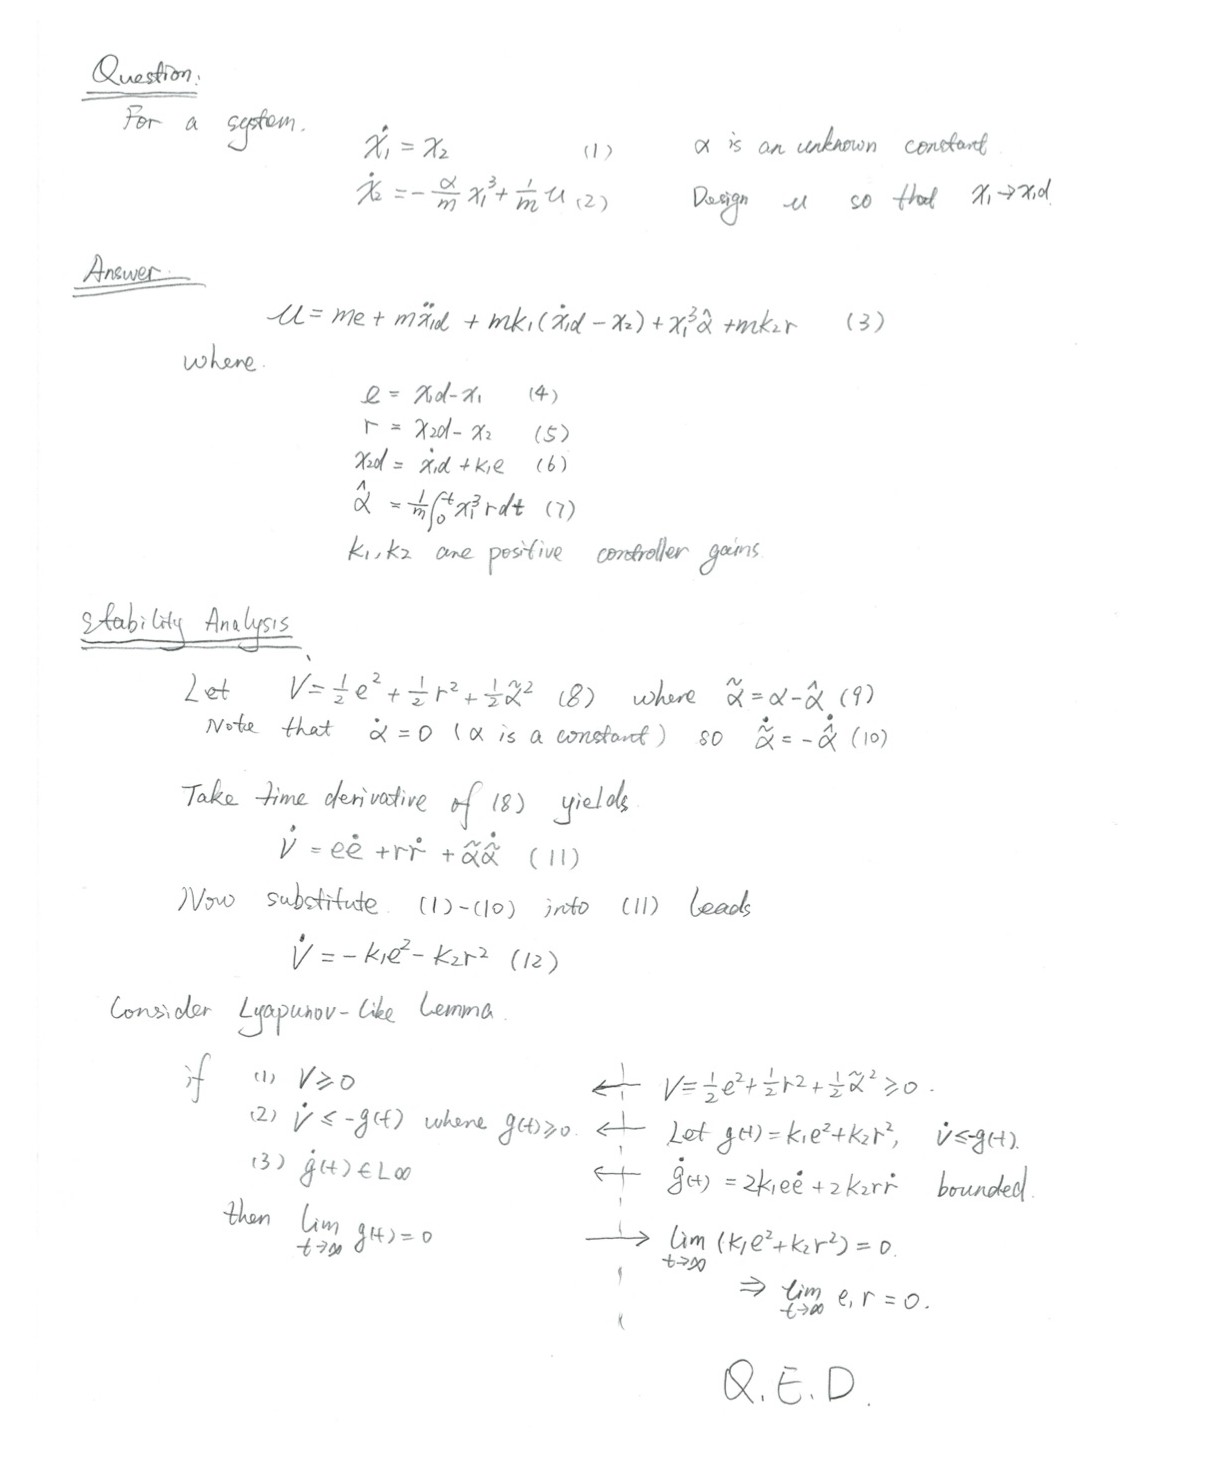 Question:
For a system.
ẋ₁ = x₂ (1) α is an unknown constant
ẋ₂ = -α/m x₁³ + 1/m u (2) Design u so that x₁→x₁d
Answer.
u = me + mẍ₁d + mk₁(ẋ₁d - x₂) + x₁³α̂ + mk₂r (3)
where.
e = x₁d - x₁ (4)
r = x₂d - x₂ (5)
x₂d = ẋ₁d + k₁e (6)
α̂ = 1/m ∫₀ᵗ x₁³ r dt (7)
k₁, k₂ are positive controller gains
Stability Analysis
Let V = ½e² + ½r² + ½α̃² (8) where α̃ = α - α̂ (9)
Note that α̇ = 0 (α is a constant) so α̃̇ = -α̂̇ (10)
Take time derivative of (8) yields
V̇ = eė + rṙ + α̃α̃̇ (11)
Now substitute (1)-(10) into (11) leads
V̇ = -k₁e² - k₂r² (12)
Consider Lyapunov-like Lemma.
if (1) V ≥ 0 ← V = ½e² + ½r² + ½α̃² ≥ 0.
(2) V̇ ≤ -g(t) where g(t) ≥ 0. ← Let g(t) = k₁e² + k₂r², V̇ ≤ -g(t).
(3) ġ(t) ∈ L∞ ← ġ(t) = 2k₁eė + 2k₂rṙ bounded.
then lim t→∞ g(t) = 0 → lim t→∞ (k₁e² + k₂r²) = 0.
⇒ lim t→∞ e, r = 0.
Q.E.D.